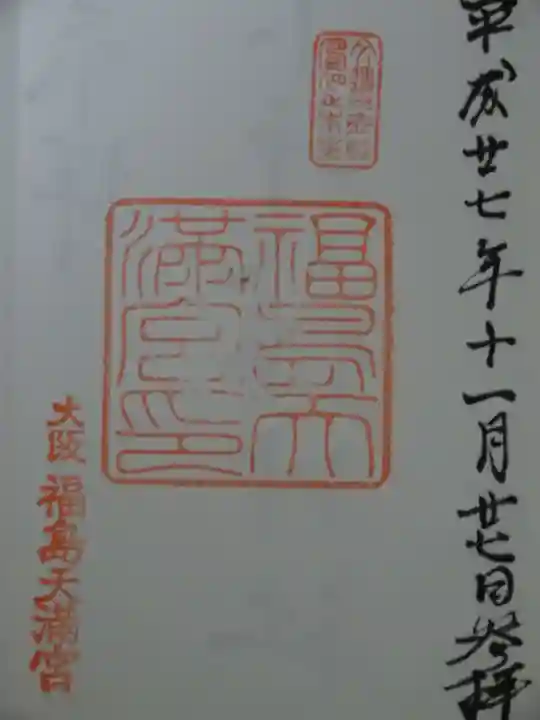 平成廿七年十一月廿七日参拝
福島天
満宮印
大阪 福島天満宮